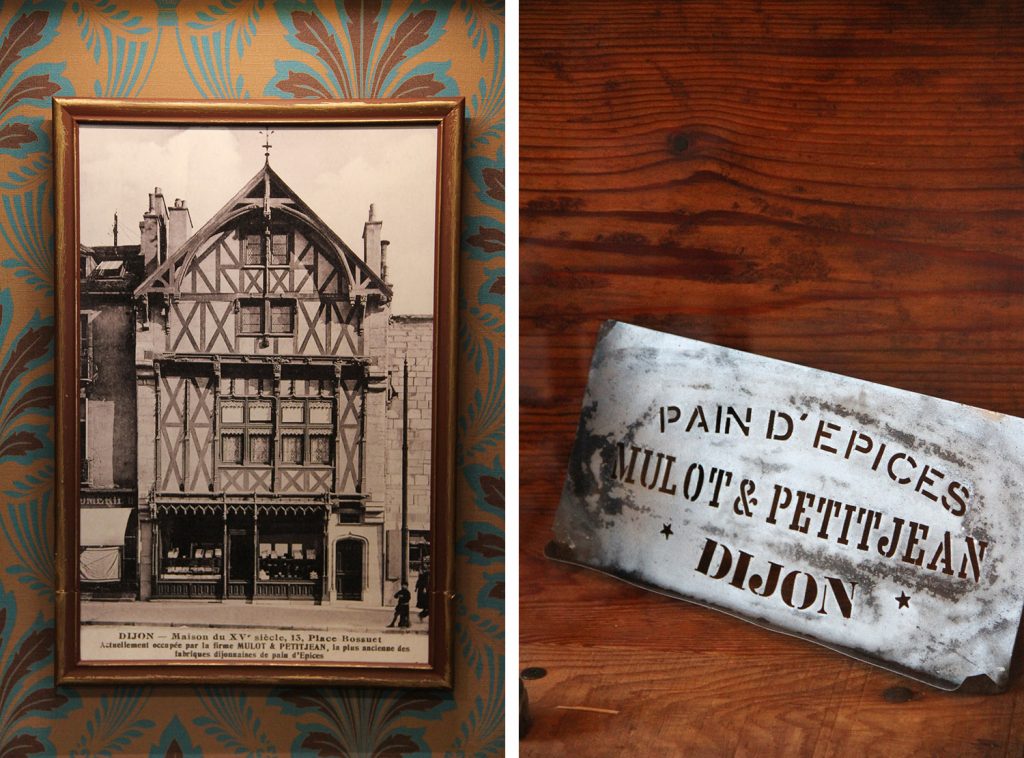 DIJON — Maison du XVᵉ siècle, 13, Place Bossuet
Actuellement occupée par la firme MULOT & PETITJEAN, la plus ancienne des
fabriques dijonnaises de pain d'Epices
PAIN D'EPICES
MULOT & PETITJEAN
DIJON